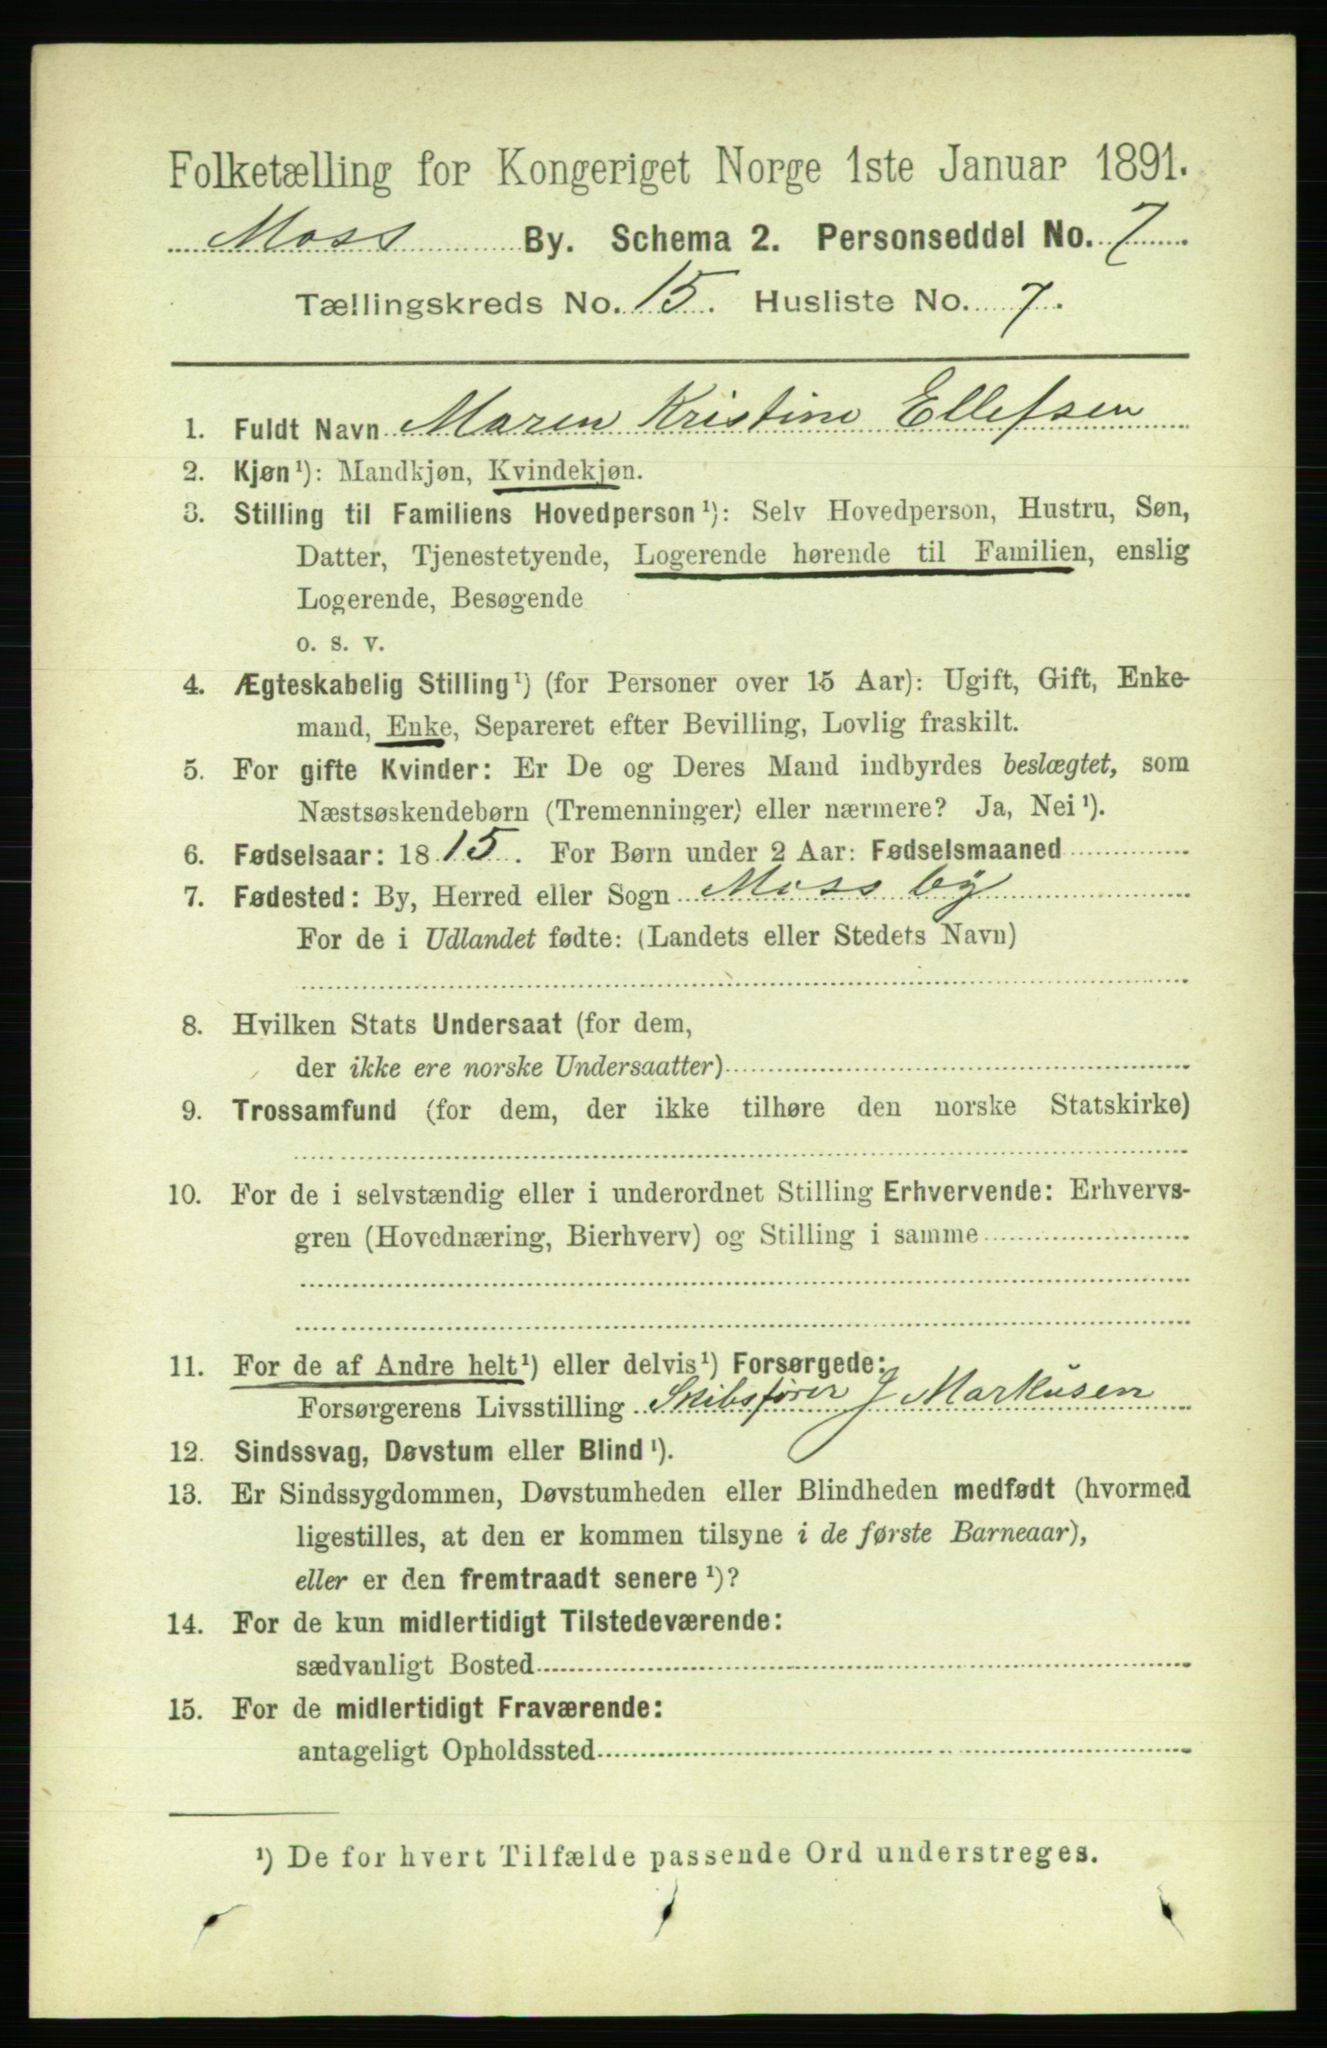 Folketælling for Kongeriget Norge 1ste Januar 1891.
Moss By. Schema 2. Personseddel No. 7
Tællingskreds No. 15. Husliste No. 7.
1. Fuldt Navn Maren Kristine Ellefsen
2. Kjøn¹): Mandkjøn, Kvindekjøn.
3. Stilling til Familiens Hovedperson¹): Selv Hovedperson, Hustru, Søn,
Datter, Tjenestetyende, Logerende hørende til Familien, enslig
Logerende, Besøgende
o. s. v.
4. Ægteskabelig Stilling¹) (for Personer over 15 Aar): Ugift, Gift, Enke-
mand, Enke, Separeret efter Bevilling, Lovlig fraskilt.
5. For gifte Kvinder: Er De og Deres Mand indbyrdes beslægtet, som
Næstsøskendebørn (Tremenninger) eller nærmere? Ja, Nei¹).
6. Fødselsaar: 1815. For Børn under 2 Aar: Fødselsmaaned
7. Fødested: By, Herred eller Sogn Moss by
For de i Udlandet fødte: (Landets eller Stedets Navn)
8. Hvilken Stats Undersaat (for dem,
der ikke ere norske Undersaatter)
9. Trossamfund (for dem, der ikke tilhøre den norske Statskirke)
10. For de i selvstændig eller i underordnet Stilling Erhvervende: Erhvervs-
gren (Hovednæring, Bierhverv) og Stilling i samme
11. For de af Andre helt¹) eller delvis¹) Forsørgede:
Forsørgerens Livsstilling Skibsfører J Markusen
12. Sindssvag, Døvstum eller Blind¹).
13. Er Sindssygdommen, Døvstumheden eller Blindheden medfødt (hvormed
ligestilles, at den er kommen tilsyne i de første Barneaar),
eller er den fremtraadt senere¹)?
14. For de kun midlertidigt Tilstedeværende:
sædvanligt Bosted
15. For de midlertidigt Fraværende:
antageligt Opholdssted
¹) De for hvert Tilfælde passende Ord understreges.